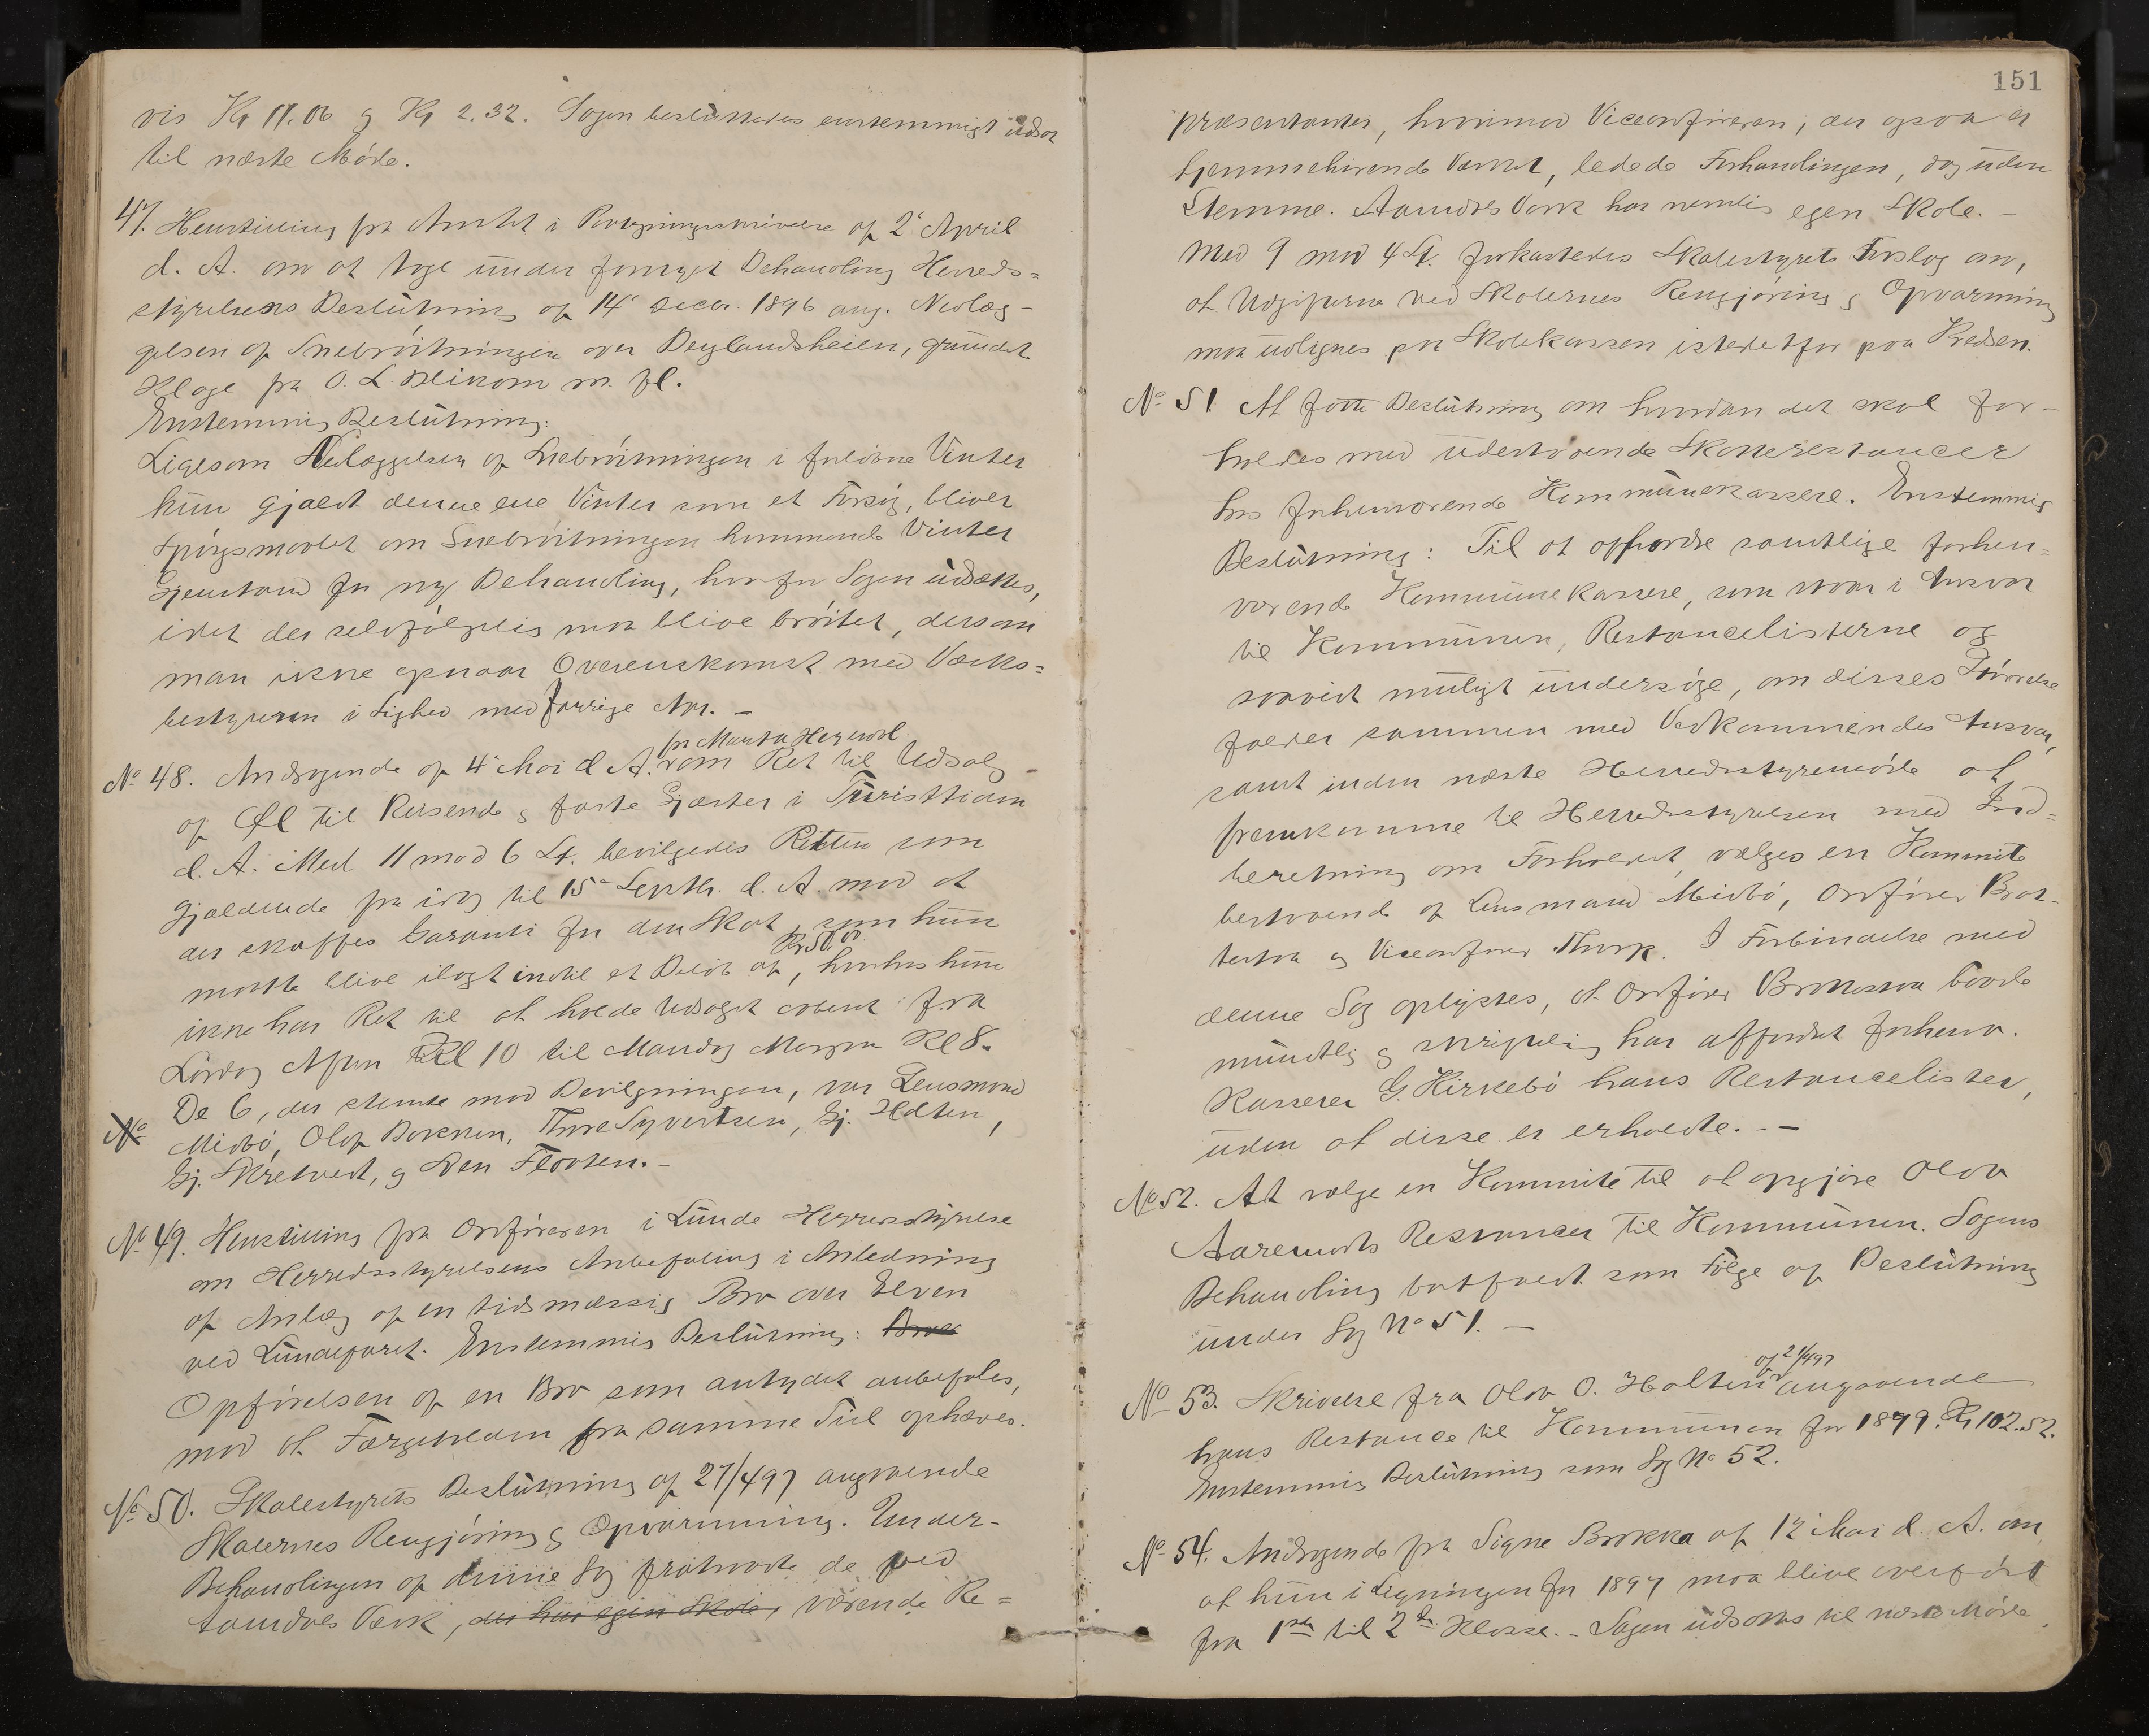 vis Kr 11.06 og Kr 2.32. Sagen besluttedes enstemmigt udsat
til næste Møde.
47. Henstilling fra Amtet i Paategningsskrivelse af 2' April
d. A. om at tage under fornyet Behandling Herreds=
styrelsens Beslutning af 14' Decbr. 1896 ang. Nedlæg-
gelsen af Snebrøitningen over Meylandsheien, grundet
Klage fra O. L. m. fl.
Enstemmig Beslutning:
Ligesom Nedlæggelsen af Snebrøitningen i forløbne Vinter
kun gjaldt denne ene Vinter som et Forsøg, bliver
Spørgsmaalet om Snebrøitningen kommende Vinter
Gjenstand for ny Behandling, hvorfor Sagen udsættes,
idet der selvfølgelig maa blive brøitet, dersom
man ikke opnaar Overenskomst med Værks=
bestyreren i Lighed med forrige Aar. –
fra Marta Hegna
No 48. Andragende af 4' Mai d A. om Ret til Udsalg
af Øl til Reisende og faste Gjæster i Turisttiden
d. A. Med 11 mod 6 St. bevilgedes Retten som
gjældende fra idag til 15' Septbr. d. A. mod at
der skaffes Garanti for den Skat, som hun
Kr 50.00
maatte blive ilagt indtil et Beløb af, hvorhos hun
ikke har Ret til at holde Udsalget aabent fra
Lørdag Aften Kl 10 til Mandag Morgen Kl 8.
De 6, der stemte mod Bevilgningen, var Lensmand
No Midbø, Olaf Bakken, Thore Syvertsen, Gj. Holten,
Gj. Skretveit, og Sven Flaaten. –
No 49. Henstilling fra Ordføreren i Lunde Herredsstyrelse
om Herredsstyrelsens Anbefaling i Anledning
af Anlæg af en tidsmæssig Bro over Elven
ved Lundefaret. Enstemmig Beslutning: Broes
Opførelsen af en Bro som antydet anbefales,
mod at Færgetolden fra samme Tid ophæves.
No 50. Skolestyrets Beslutning af 27/4 97 angaaende
Skolernes Rengjøring og Opvarmning. Under-
Behandlingen af denne Sag fratraadte de ved
Aamdals Værk, der har egen Skole, værende Re=
151
præsentanter, hvorimod Viceordføreren, der ogsaa er
hjemmehørende Værket, ledede Forhandlingen, dog uden
Stemme. Aamdals Værk har nemlig egen Skole. –
Med 9 mod 4 St. forkastedes Skolestyrets Forslag om,
at Udgifterne ved Skolernes Rengjøring og Opvarmning
maa udlignes paa Skolekassen istedetfor paa Kredsen.
No 51. At fatte Beslutning om hvordan det skal for-
holdes med udestaaende Skatterestancer
hos forhenværende Kommunekassere. Enstemmig
Beslutning: Til at affordre samtlige forhen=
værende Kommunekassere, som staar i Ansvar
til Kommunen, Restancelisterne og
saavidt muligt undersøge, om disses
falder sammen med Vedkommendes Ansvar,
samt inden næste Herredsstyremøde at
fremkomme til Herredsstyrelsen med Ind=
beretning om Forholdet, vælges en Kommite
bestaaende af Lensmand Midbø, Ordfører Brat-
testaa og Viceordfører Thorp. I Forbindelse med
denne Sag oplystes, at Ordfører Brattestaa baade
mundtlig og skriftlig har affordret forhenv.
Kasserer G. Kirkebø hans Restancelister,
uden at disse er erholdte. – –
No 52. At vælge en Kommite til at opgjøre Olav
Aaremodts Restancer til Kommunen. Sagens
Behandling bortfaldt som Følge af Beslutning
under Sag No 51. –
af 21/4 97
No 53. Skrivelse fra Olav O. Holten angaaende
hans Restance til Kommunen for 1879. Kr 102.52.
Enstemmig Beslutning som Sag No 52.
No 54. Andragende fra Signe Brokka af 12' Mai d. A. om
at hun i Ligningen for 1897 maa blive overført
fra 1ste til 2den Klasse. – Sagen udsattes til næste Møde.